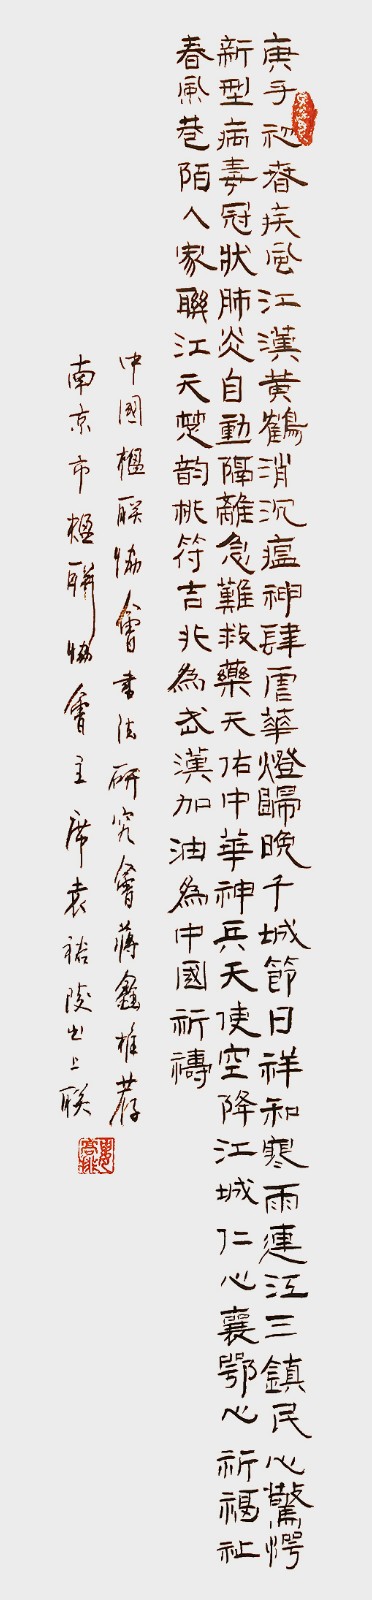 庚子初春疾風江漢黃鶴消沉瘟神肆虐華燈歸晚千城節日祥和寒雨連江三鎮民心驚愕
新型病毒冠狀肺炎自動隔離急難救藥天佑中華神兵天使空降江城仁心襄鄂心祈福祉
春風巷陌人家聯江天楚韵桃符吉兆為武漢加油為中國祈禱
中國楹联協會書法研究會蔣鑫推荐
南京市楹聯協會主席袁裕陵出上联